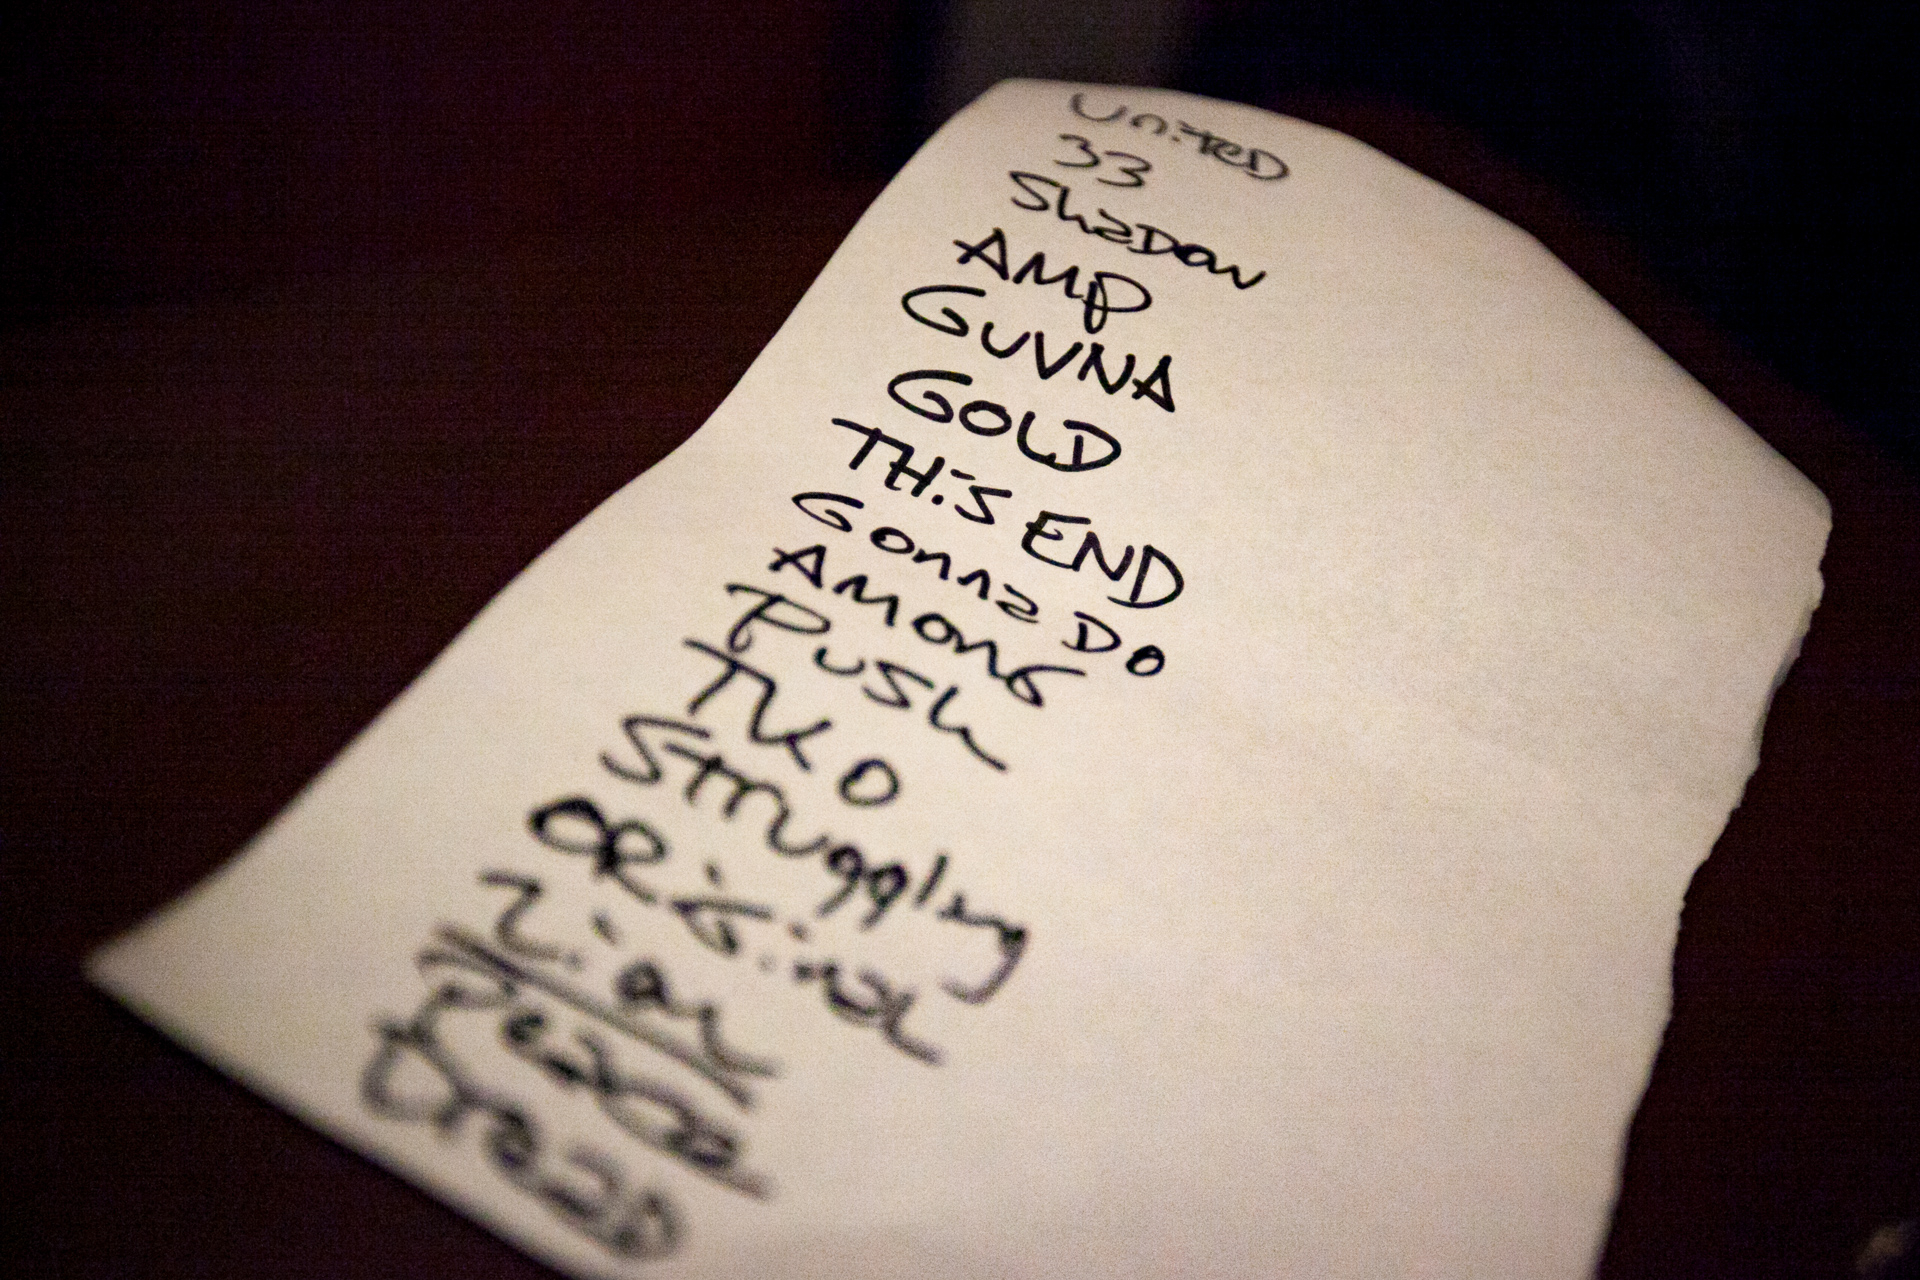 UNiTED
33
ShaDow
AMP
GUVNA
GOLD
THiS END
Gonna DO
AMONG
PUSh
TKO
Struggling
ORiGinal
Zion
DreaD